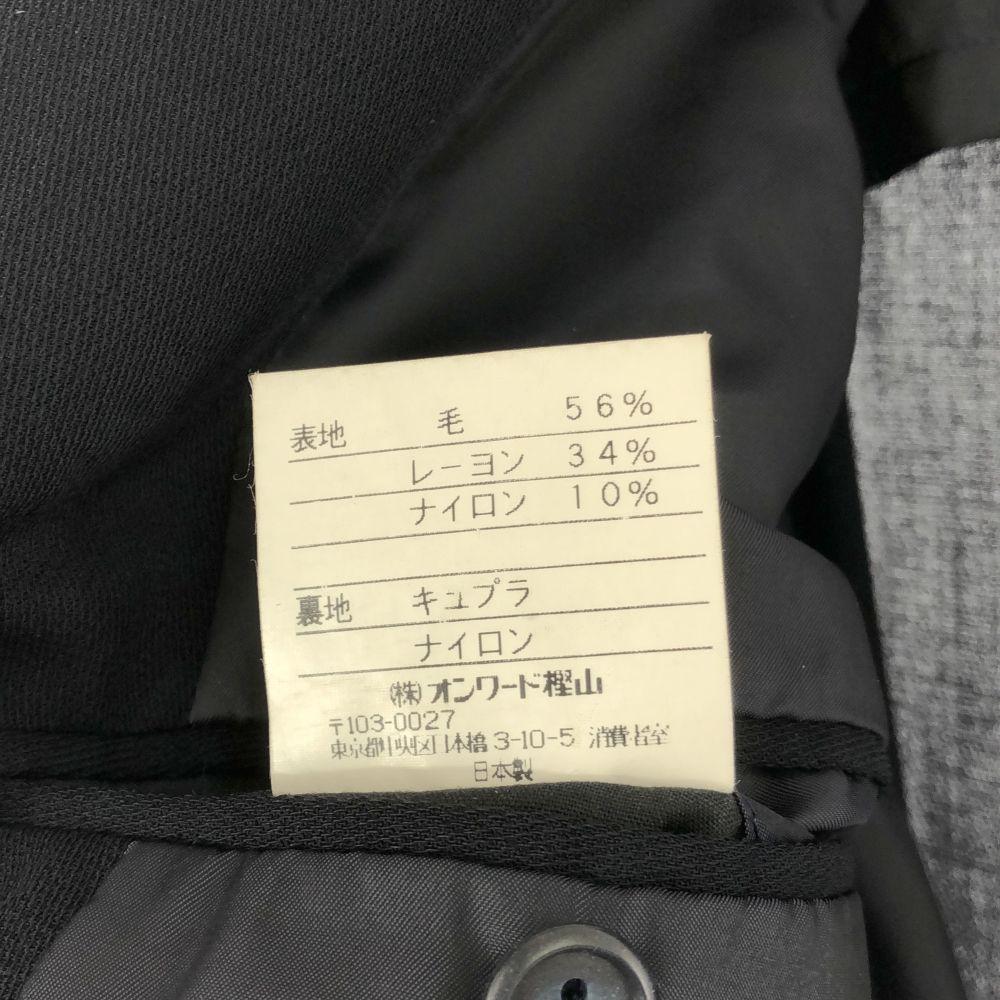 表地 毛 56%
レーヨン 34%
ナイロン 10%
裏地 キュプラ
ナイロン
(株)オンワード樫山
〒103-0027
東京都中央区日本橋3-10-5 消費者室
日本製